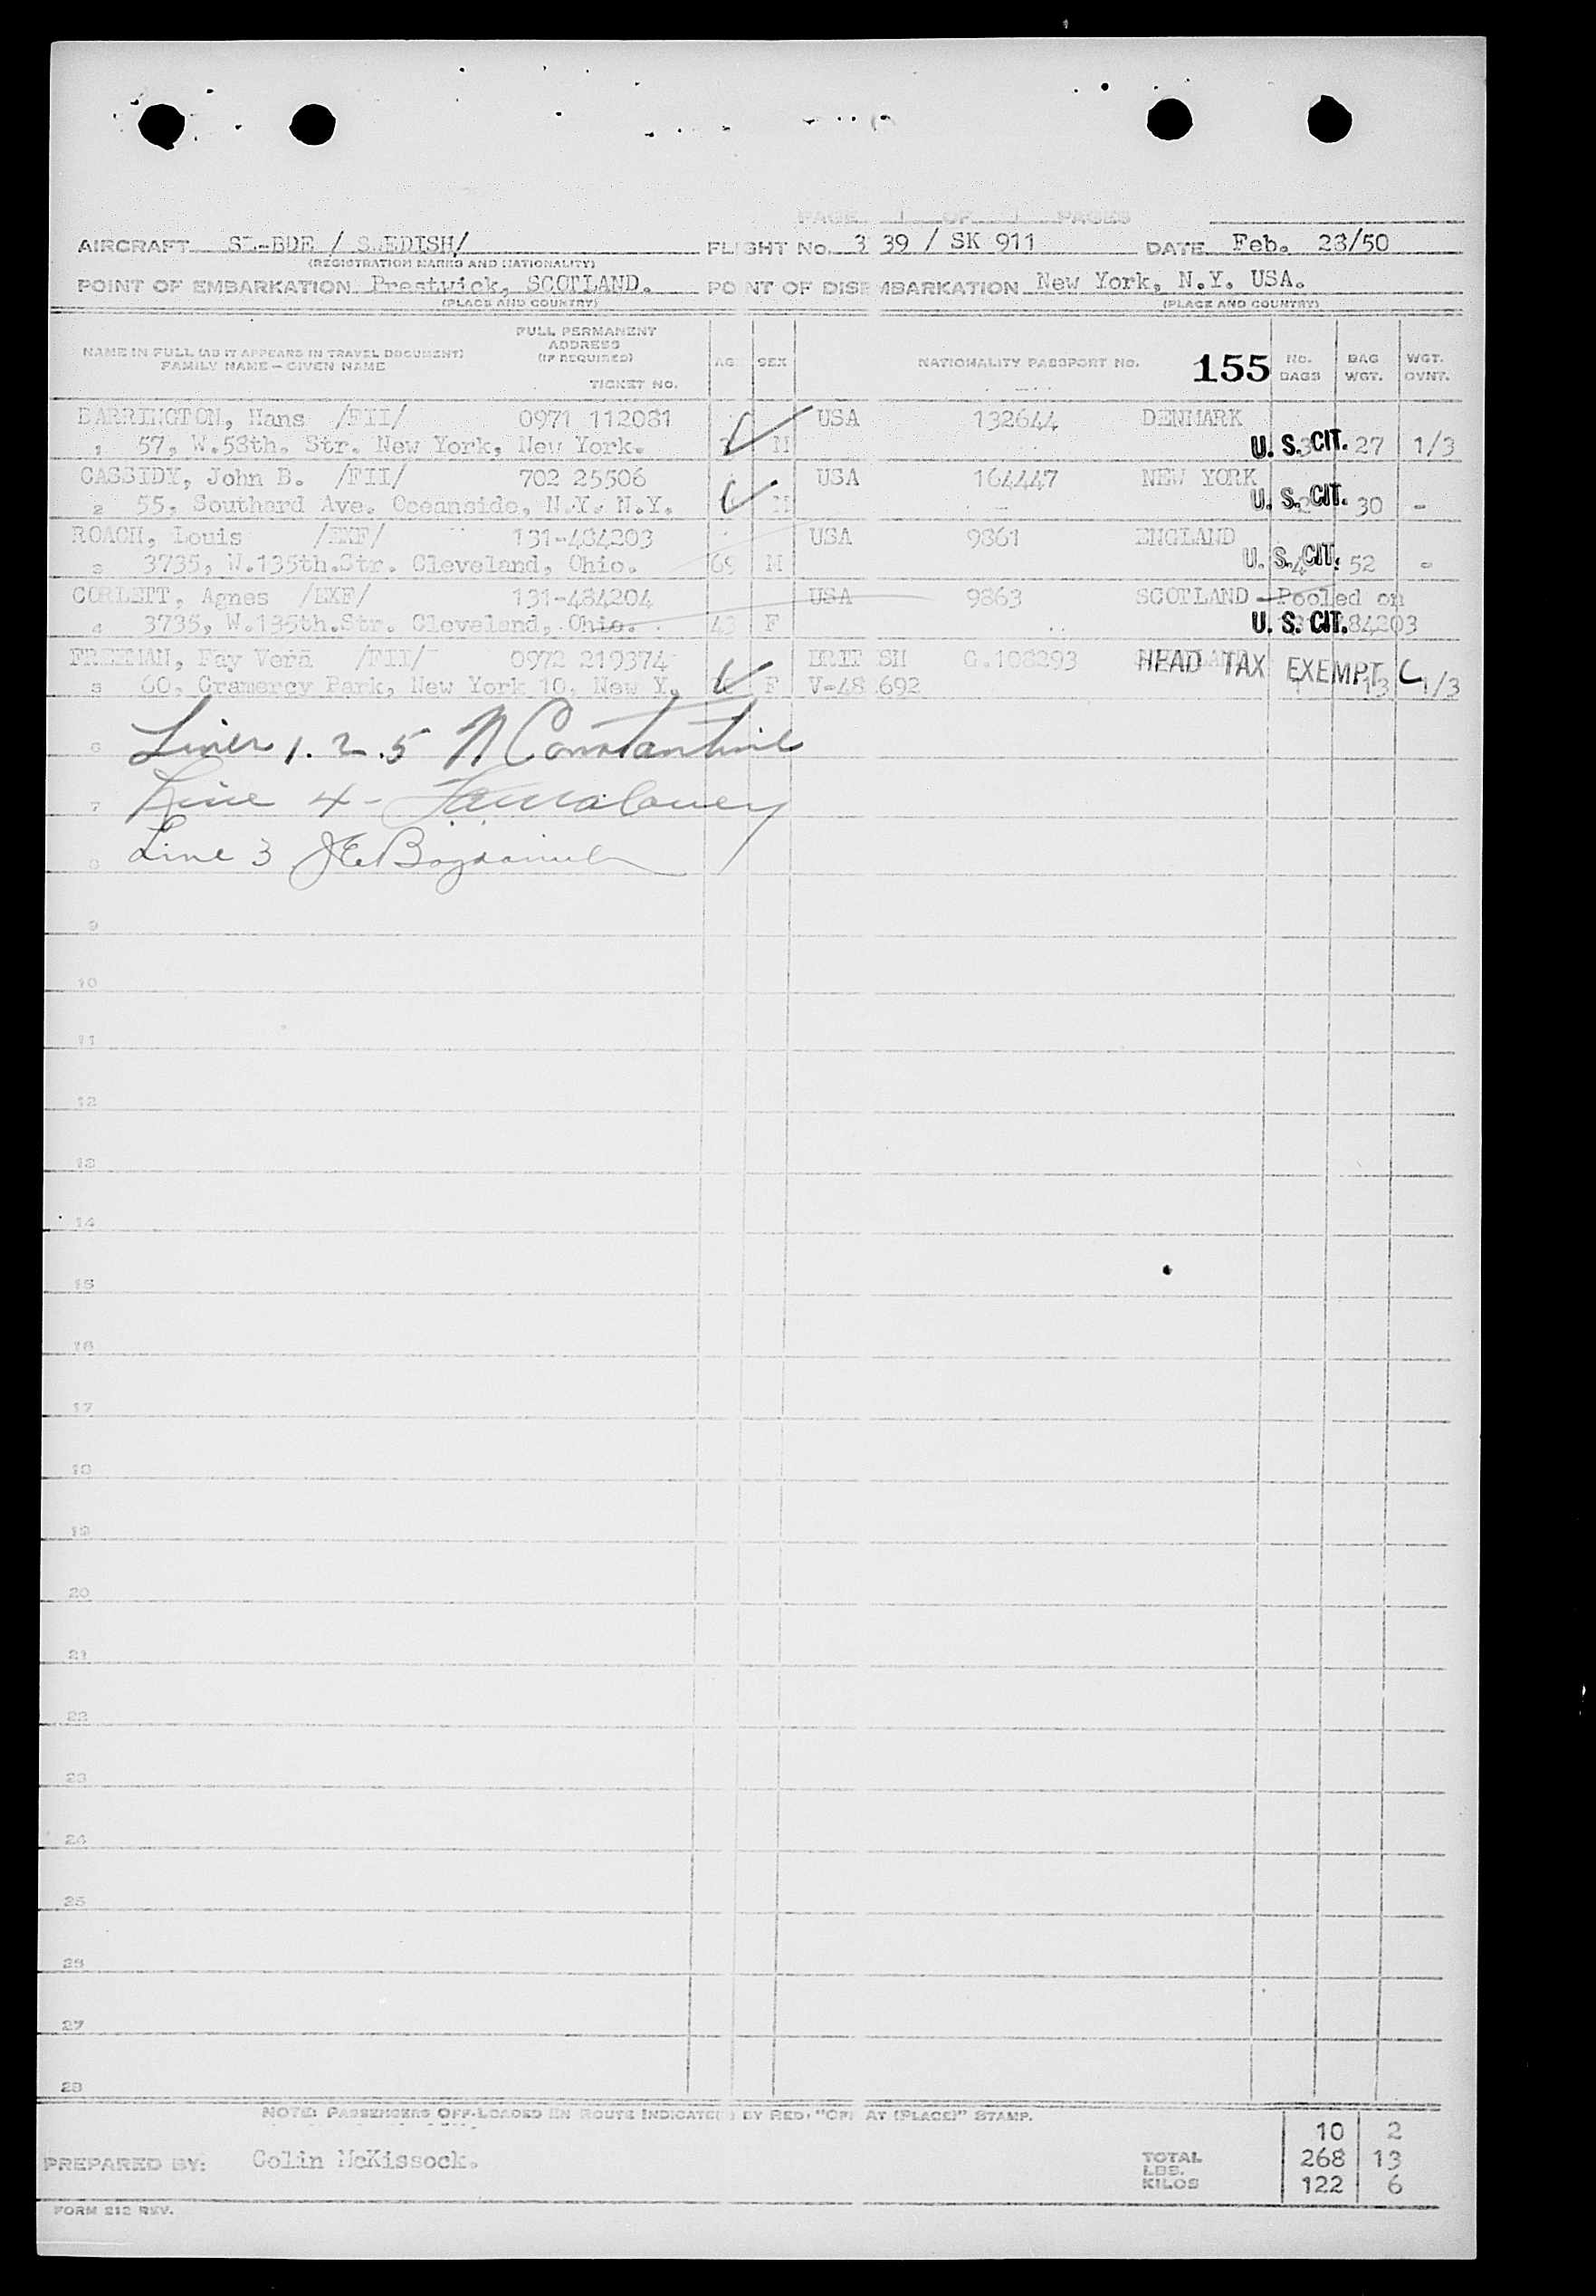 PAGE 1 OF 1 PAGES
AIRCRAFT SE-BDE / S EDISH/ FLIGHT No. 3 39 / SK 911 DATE Feb. 23/50
(REGISTRATION MARKS AND NATIONALITY)
POINT OF EMBARKATION Prestwick, SCOTLAND. POINT OF DISEMBARKATION New York, N.Y. USA.
(PLACE AND COUNTRY) (PLACE AND COUNTRY)
NAME IN FULL (AS IT APPEARS IN TRAVEL DOCUMENT) FAMILY NAME – GIVEN NAME FULL PERMANENT ADDRESS (IF REQUIRED) TICKET NO. AGE SEX NATIONALITY PASSPORT NO. 155 NO. BAGS BAG WGT. WGT. OVNT.
BARRINGTON, Hans /FII/ 0971 112081 USA 132644 DENMARK
1 57, W.58th. Str. New York, New York. M U. S. CIT. 3 27 1/3
CASSIDY, John B. /FII/ 702 25506 USA 164447 NEW YORK
2 55, Southard Ave. Oceanside, N.Y. N.Y. M U. S. CIT. 2 30 -
ROACH, Louis /EKF/ 131-484203 USA 9861 ENGLAND
3 3735, W.135th.Str. Cleveland, Ohio. 69 M U. S. CIT. 4 52 -
CORLETT, Agnes /EKF/ 131-484204 USA 9863 SCOTLAND Pooled on
4 3735, W.135th.Str. Cleveland, Ohio. 43 F U. S. CIT. 84203
FREEMAN, Fay Vera /FII/ 0972 219374 BRIT SH G.108293 HEAD TAX EXEMPT C
5 60, Gramercy Park, New York 10, New Y. F V-48 692 1 13 1/3
6 Lines 1. 2. 5 N Constantine
7 Line 4 -
8 Line 3
9
10
11
12
13
14
15
16
17
18
19
20
21
22
23
24
25
26
27
28
NOTE: PASSENGERS OFF-LOADED EN ROUTE INDICATED BY RED, "OFF AT (PLACE)" STAMP.
10 2
PREPARED BY: Colin McKissock. TOTAL 268 13
LBS.
KILOS 122 6
FORM 212 REV.